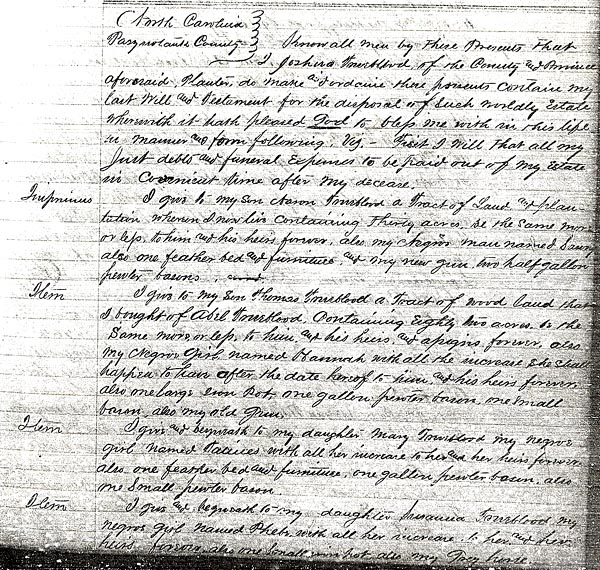 North Carolina
Pasquotank County Know all men by these Presents that
I Joshua Trueblood, of the County and Province
aforesaid, Planter, do make and ordaine these presents contain my
last Will and Testament for the disposal of such worldly Estate
wherewith it hath pleased God to bless me with in this life
in manner and form following. Viz - First I will that all my
Just debts and funeral Expenses to be paid out of my Estate
in time after my decease.
Imprimus I give to my Son Aaron Trueblood a Tract of Land and plan-
tation wherein I now live containing thirty acres, be the same more
or less, to him and his heirs forever, also my Negro man named
also one feather bed and furniture and my new gun, two half gallon
pewter basons.
Item I give to my Son Thomas Trueblood a Tract of wood land that
I bought of Abel Trueblood, Containing Eighty two acres be the
Same more or less, to him and his heirs and assigns forever, also
my Negro Girl named Hannah with all the increase she shall
happen to have after the date hereof to him and his heirs forever
also one large iron Pot, one gallon pewter bason, one small
bason, also my old gun.
Item I give and bequeath to my daughter Mary Trueblood my negro
girl named with all her increase to her and her heirs forever
also one feather bed and furniture, one gallon pewter bason, also
one small pewter bason.
Item I give and bequeath to my daughter Susanna Trueblood my
negro girl named Pheb, with all her increase to her and her
heirs forever, also one small iron pot also my Grey horse.